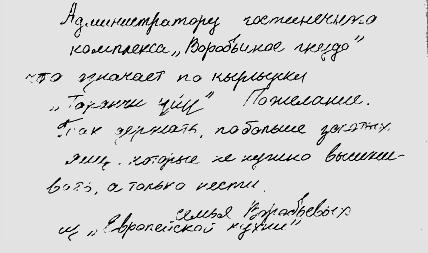 Администратору гостиничного
комплекса „Воробьиное гнездо"
что означает по кыргызски
„Таранчи уйu" Пожелание.
Так держать, побольше золотых
яиц, которые не нужно высижи-
вать, а только нести.
семья Воробьевых
из „Европейской кухни"